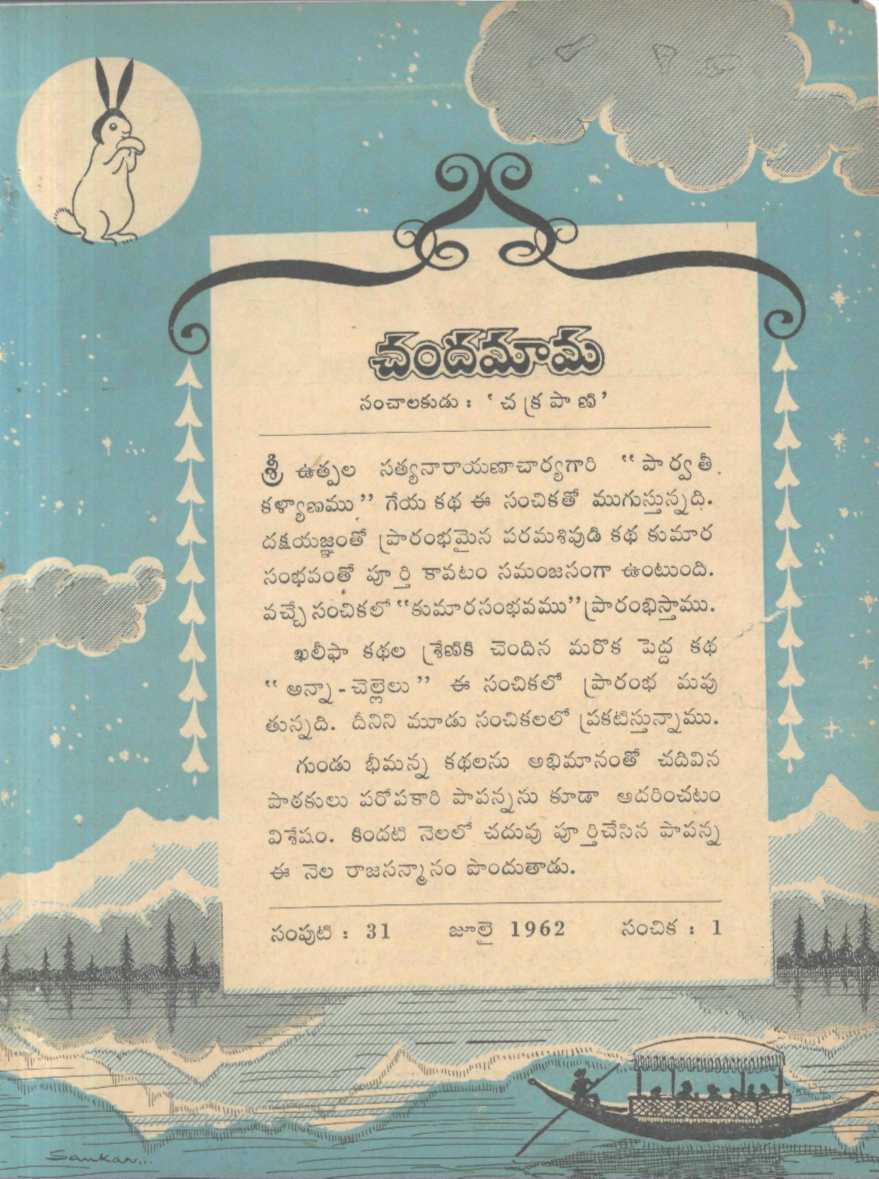 చందమామ
సంచాలకుడు : ‘చక్రపాణి’
శ్రీ ఉత్పల సత్యనారాయణాచార్యగారి “పార్వతీ
కళ్యాణము” గేయ కథ ఈ సంచికతో ముగుస్తున్నది.
దక్షయజ్ఞంతో ప్రారంభమైన పరమశివుడి కథ కుమార
సంభవంతో పూర్తి కావటం సమంజసంగా ఉంటుంది.
వచ్చే సంచికలో “కుమారసంభవము” ప్రారంభిస్తాము.
ఖలీఫా కథల శ్రేణికి చెందిన మరొక పెద్ద కథ
“అన్నా-చెల్లెలు” ఈ సంచికలో ప్రారంభ మవు
తున్నది. దీనిని మూడు సంచికలలో ప్రకటిస్తున్నాము.
గుండు భీమన్న కథలను అభిమానంతో చదివిన
పాఠకులు పరోపకారి పాపన్నను కూడా ఆదరించటం
విశేషం. కిందటి నెలలో చదువు పూర్తిచేసిన పాపన్న
ఈ నెల రాజసన్మానం పొందుతాడు.
సంపుటి : 31 జూలై 1962 సంచిక : 1
Sankar...